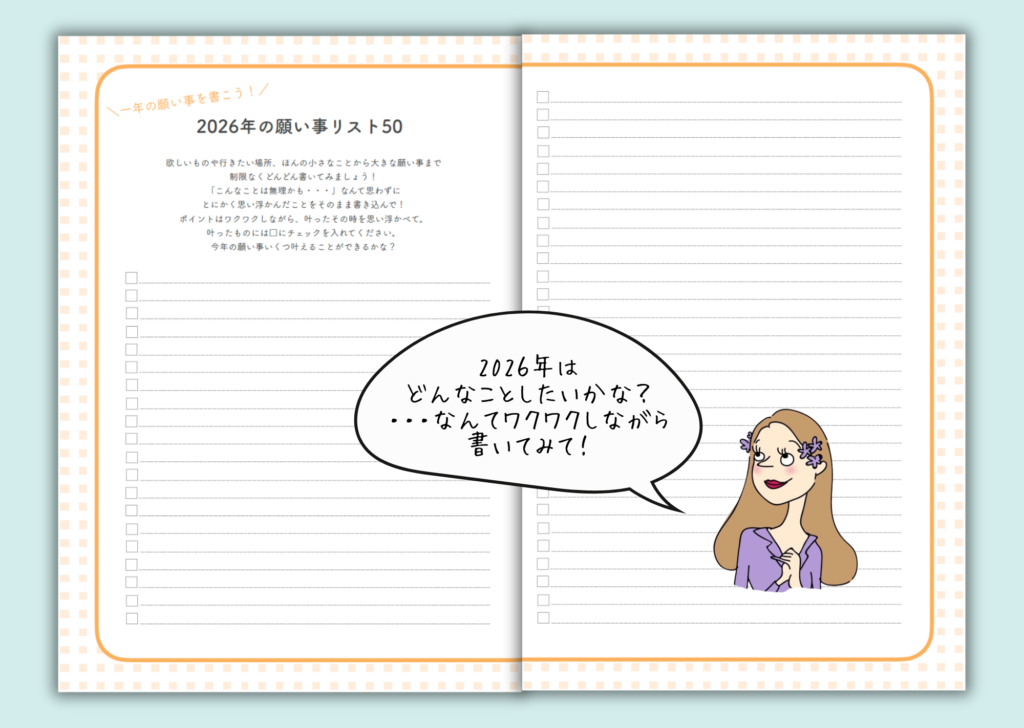 ＼一年の願い事を書こう！／
2026年の願い事リスト50
欲しいものや行きたい場所、ほんの小さなことから大きな願い事まで
制限なくどんどん書いてみましょう！
「こんなことは無理かも・・・」なんて思わずに
とにかく思い浮かんだことをそのまま書き込んで！
ポイントはワクワクしながら、叶ったその時を思い浮かべて。
叶ったものには□にチェックを入れてください。
今年の願い事いくつ叶えることができるかな？
2026年は
どんなことしたいかな？
・・・なんてワクワクしながら
書いてみて！